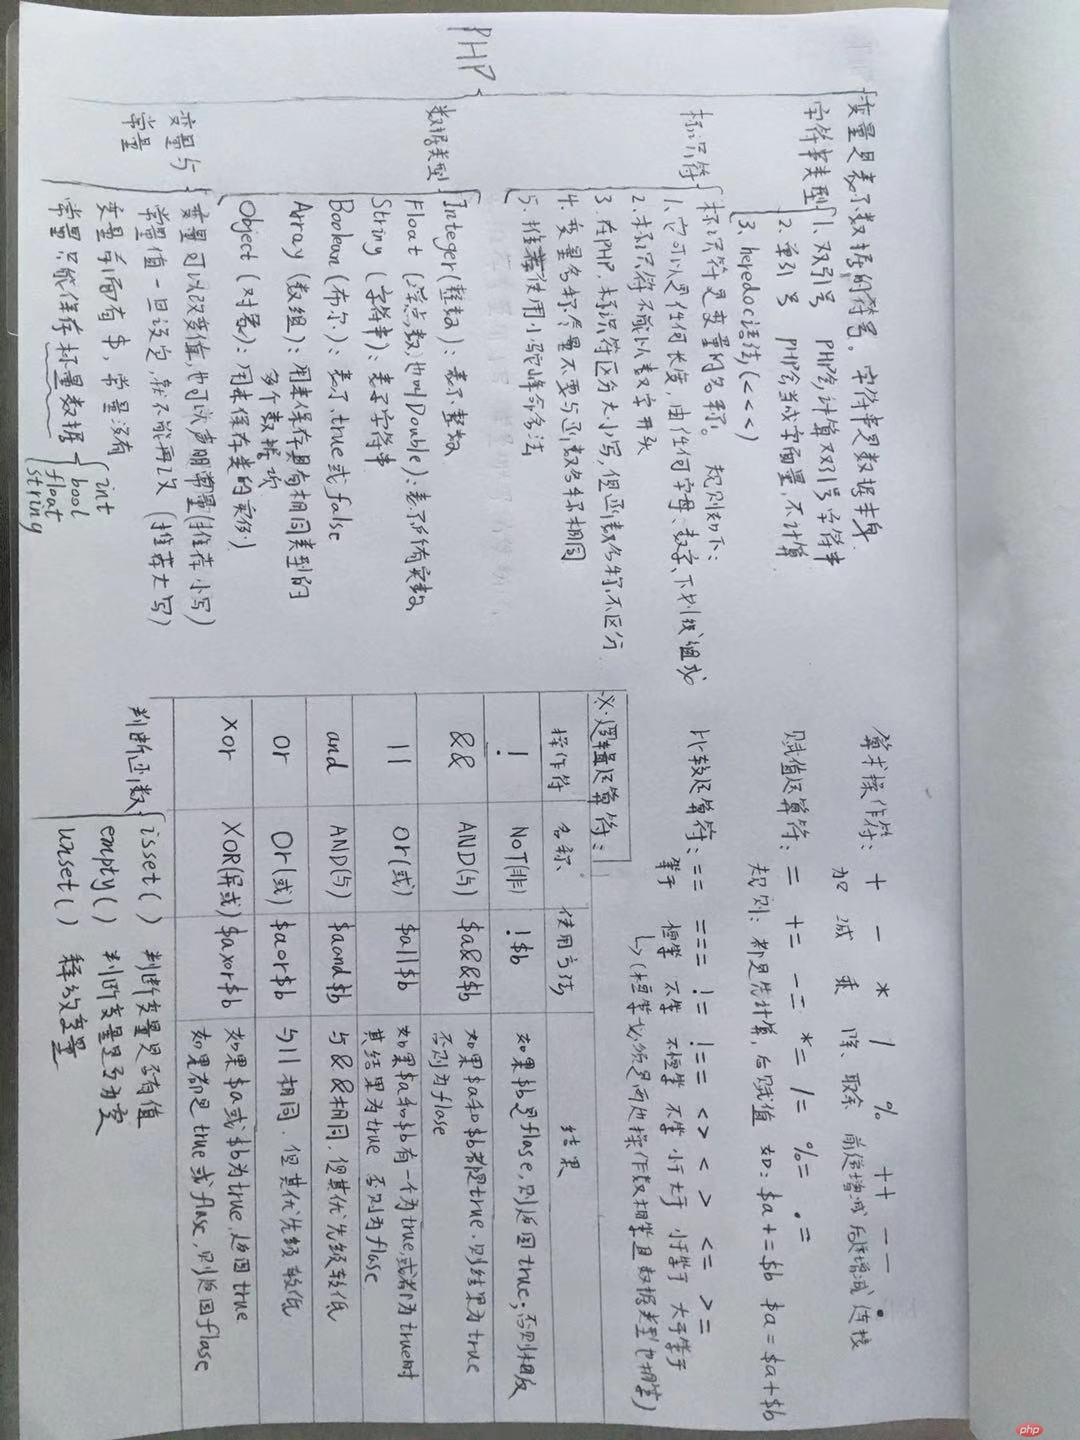 PHP
变量是表示数据的符号。字符串是数据本身.
字符串类型
1. 双引号 PHP会计算双引号字符串
2. 单引号 PHP会当成字面量,不计算
3. heredoc语法(<<<)
标识符
标识符是变量的名称。 规则如下:
1. 它可以是任何长度,由任何字母、数字、下划线组成
2. 标识符不能以数字开头
3. 在PHP,标识符区分大小写,但函数名称不区分
4. 变量名称尽量不要与函数名称相同
5. 推荐使用小驼峰命名法
数据类型
Integer(整数):表示整数
Float(浮点数,也叫Double):表示所有实数
String(字符串):表示字符串
Boolean(布尔):表示true或false
Array(数组):用来保存具有相同类型的
多个数据项
Object(对象):用来保存类的实例
变量与
常量
变量可以改变值,也可以声明常量(推荐小写)
常量值一旦设定,就不能再改(推荐大写)
变量前面有$,常量没有
常量只能保存标量数据
int
bool
float
string
算术操作符: + - * / % ++ -- .
加 减 乘 除 取余 前递增减 后递增减 连接
赋值运算符: = += -= *= /= %= .=
规则:都是先计算,后赋值 如:$a+=$b $a=$a+$b
比较运算符: == === != !== <> < > <= >=
等于 恒等 不等 不恒等 不等 小于 大于 小于等于 大于等于
↳(恒等必须是两边操作数相等且数据类型也相等)
※逻辑运算符:
操作符 名称 使用方法 结果
! NOT(非) !$b 如果$b是flase,则返回true;否则相反
&& AND(与) $a&&$b 如果$a和$b都是true,则结果为true
否则为flase
|| Or(或) $a||$b 如果$a和$b有一个为true,或者都为true时
其结果为true 否则为flase
and AND(与) $aand$b 与&&相同,但其优先级较低
or Or(或) $aor$b 与||相同,但其优先级较低
xor XOR(异或) $axor$b 如果$a或$b为true,返回true
如果都是true或flase,则返回flase
判断函数
isset() 判断变量是否有值
empty() 判断变量是否为空
unset() 释放变量
php